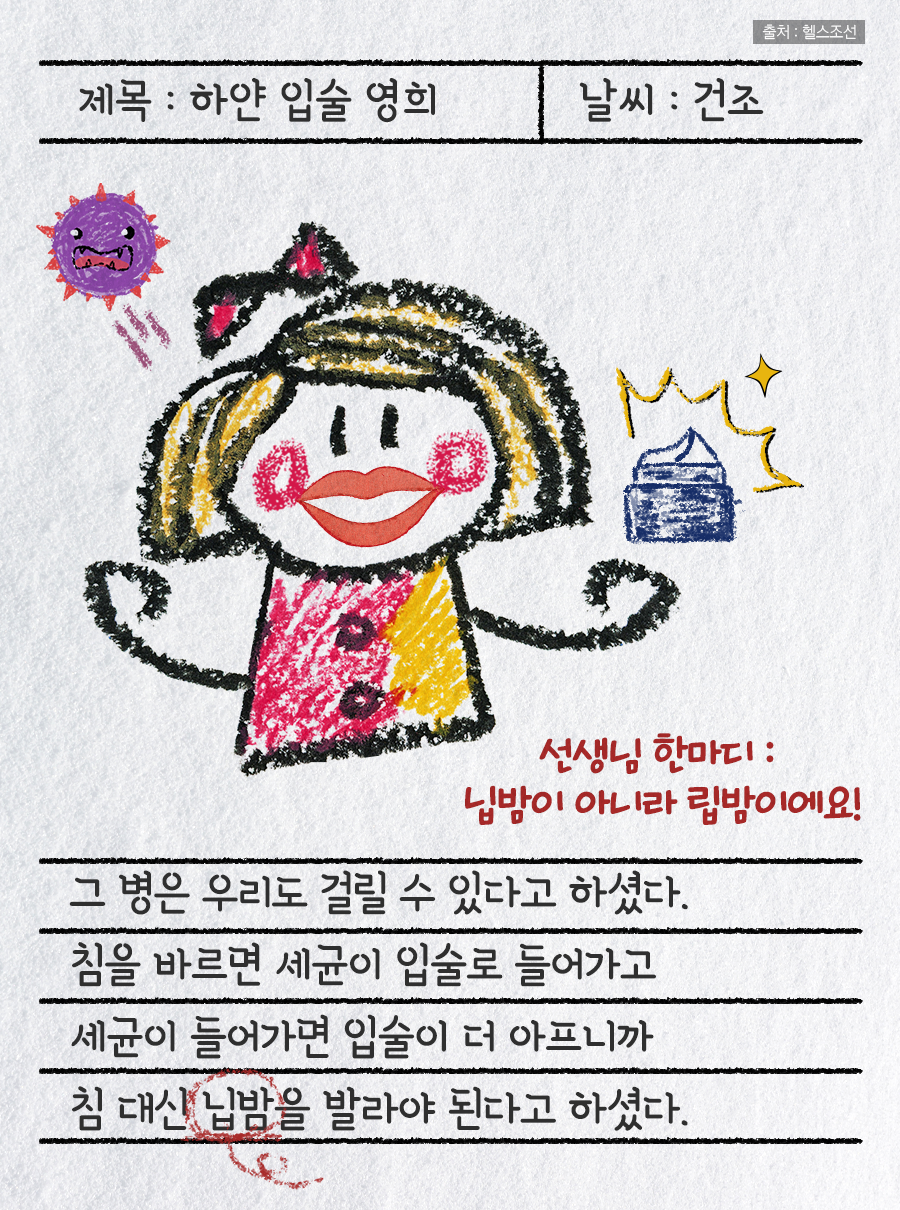 출처 : 헬스조선
제목 : 하얀 입술 영희
날씨 : 건조
선생님 한마디 :
닙밤이 아니라 립밤이에요!
그 병은 우리도 걸릴 수 있다고 하셨다.
침을 바르면 세균이 입술로 들어가고
세균이 들어가면 입술이 더 아프니까
침 대신 닙밤을 발라야 된다고 하셨다.